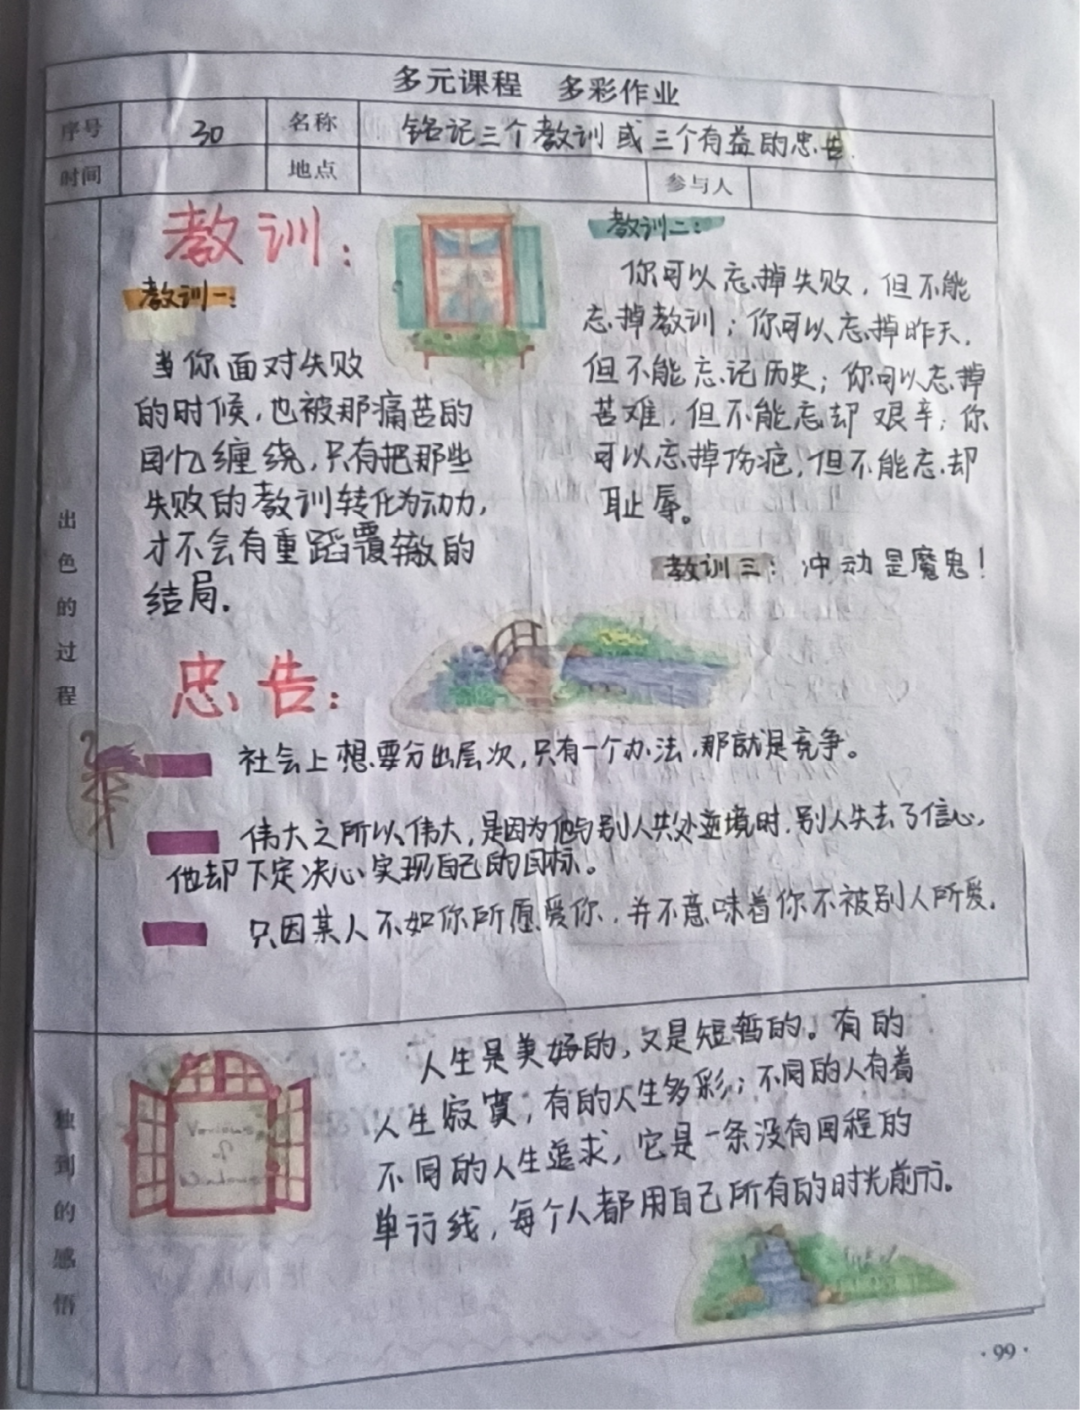 多元课程 多彩作业
序号 30 名称 铭记三个教训或三个有益的忠告.
时间 地点 参与人
出色的过程
教训:
教训一:
当你面对失败
的时候,也被那痛苦的
回忆缠绕,只有把那些
失败的教训转化为动力,
才不会有重蹈覆辙的
结局.
教训二:
你可以忘掉失败,但不能
忘掉教训;你可以忘掉昨天,
但不能忘记历史;你可以忘掉
苦难,但不能忘却艰辛;你
可以忘掉伤疤,但不能忘却
耻辱。
教训三: 冲动是魔鬼!
忠告:
社会上想要分出层次,只有一个办法,那就是竞争。
伟大之所以伟大,是因为他与别人共处逆境时,别人失去了信心,
他却下定决心实现自己的目标。
只因某人不如你所愿爱你,并不意味着你不被别人所爱.
独到的感悟
人生是美好的,又是短暂的。有的
人生寂寞;有的人生多彩;不同的人有着
不同的人生追求,它是一条没有回程的
单行线,每个人都用自己所有的时光前行。
·99·